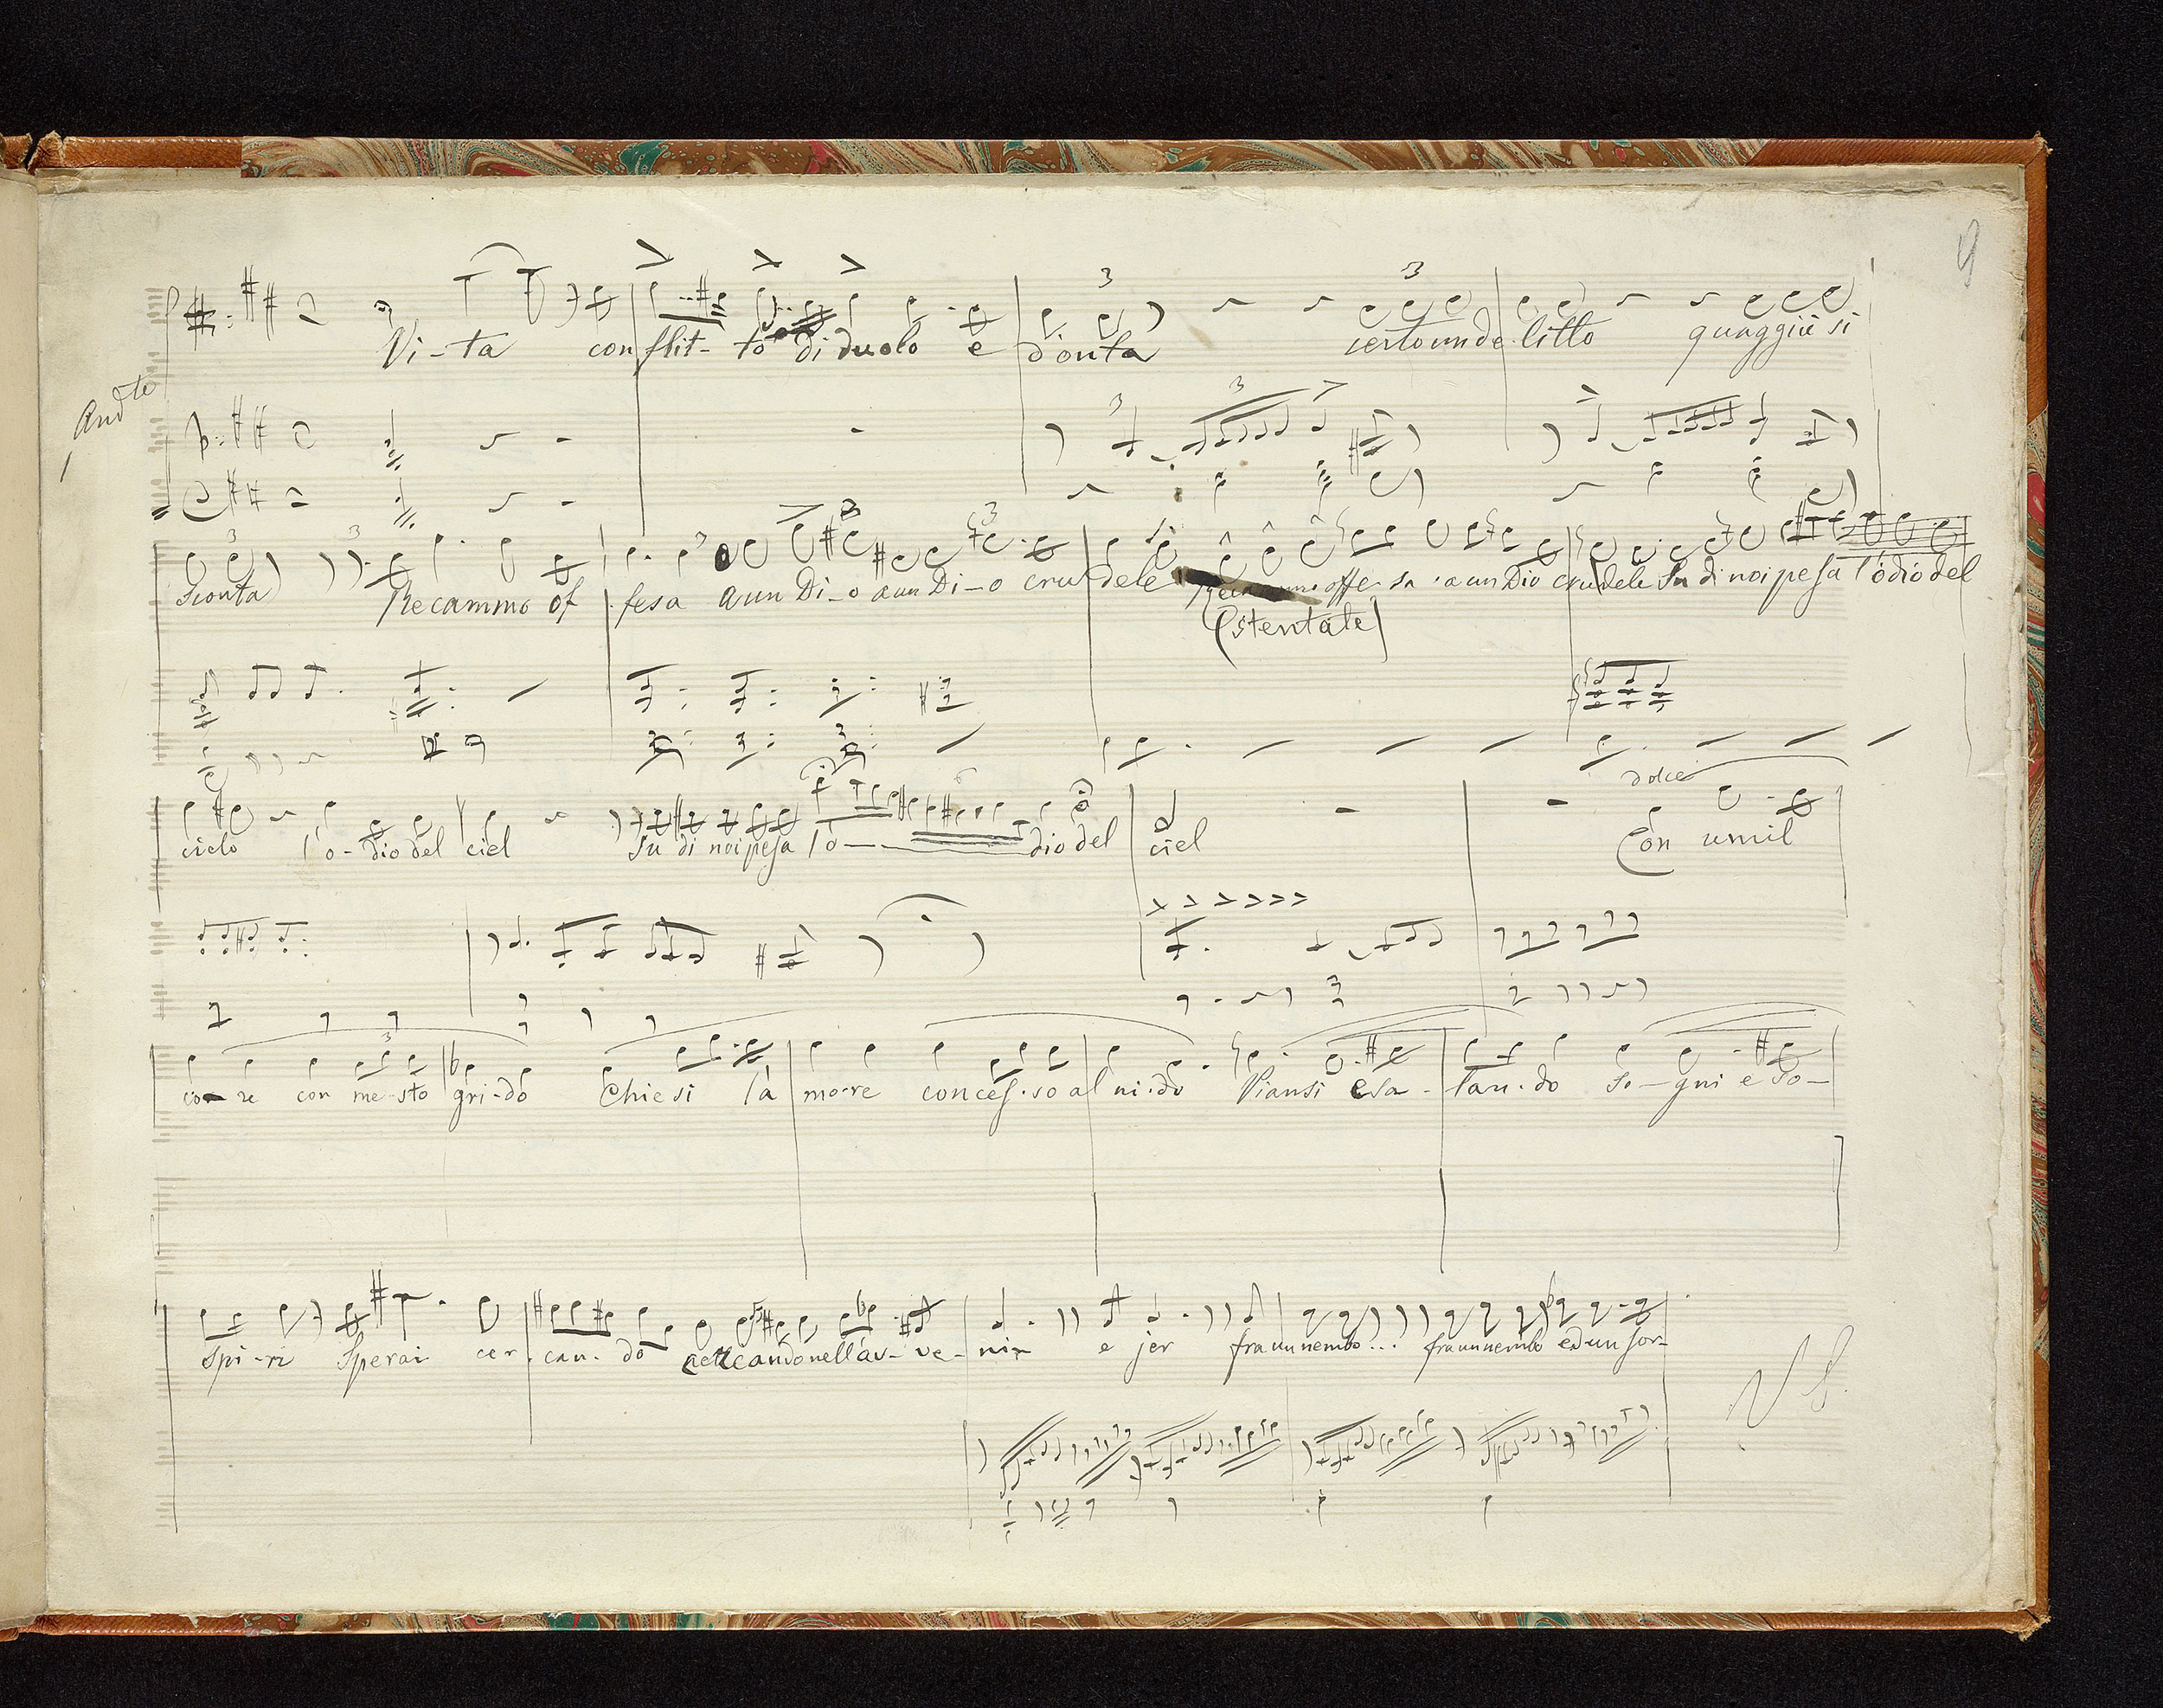 9
Andte
Vi-ta con flit-to di duolo e d'onta certo un de-litto quaggiù si
sconta Recammo of-fesa a un Di-o a un Di-o crudele offe-sa a un Dio crudele Su di noi pesa l'odio del
(stentate)
dolce
cielo l'o-dio del ciel Su di noi pesa l'o-dio del ciel Con umil
co-re con me-sto gri-do Chiesi la mo-re conces-so al ni-do Piansi esa-lan-do so-gni e so-
spi-ri Sperai cer-can-do cercando nell'av-ve-nir e jer fra un nembo... fra un nembo ed un sor-
VS.